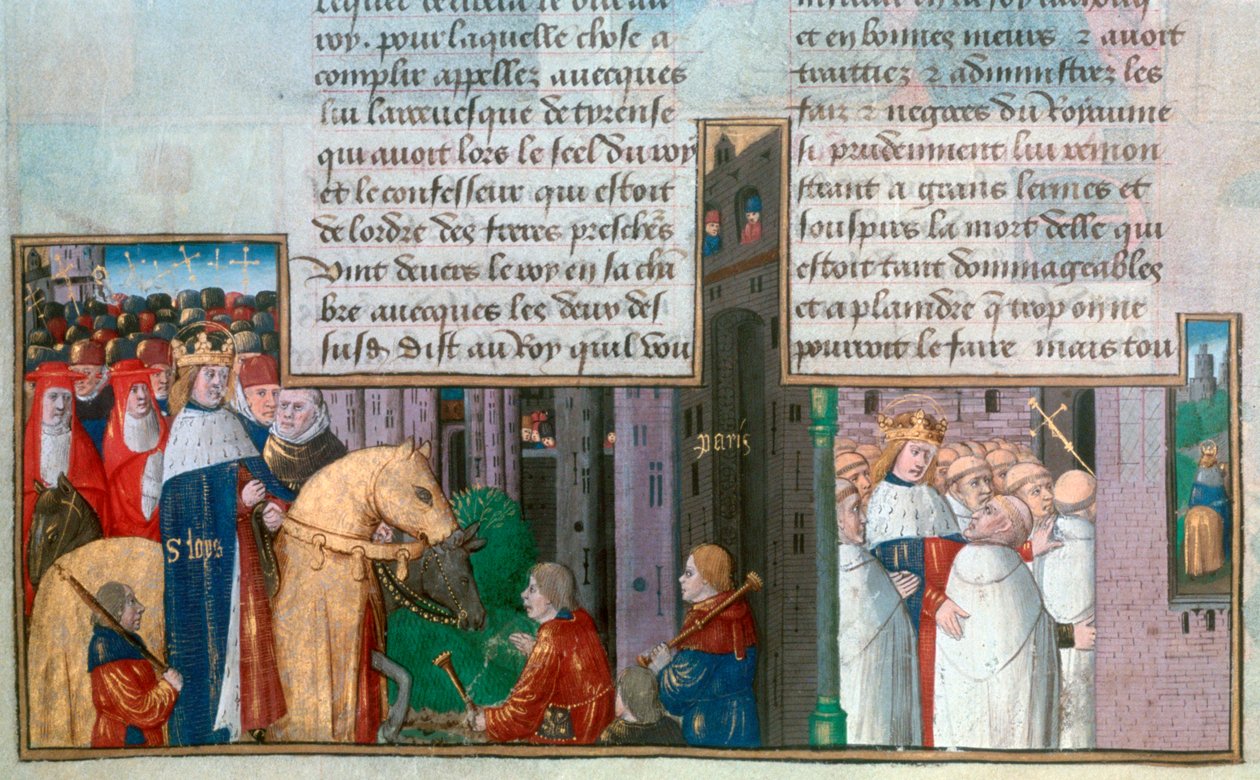 roy. pour laquelle chose a
complir appellez auecques
lui larceuesque de tyrense
qui auoit lors le seel du roy
et le confesseur qui estoit
de lordre des freres preschēs
Vint deuers le roy en sa chā
bre auecques les deux des
susdꝫ Dist au Roy quil vou
et en bonnes meurs ⁊ auoit
traittiez ⁊ administrez les
faiz ⁊ negoces du Royaume
si prudemment lui remon
strant a grans lermes et
souspirs la mort delle qui
estoit tant dommageables
et a plaindre q̄ trop on ne
pourroit le faire mais tou
S loys
paris